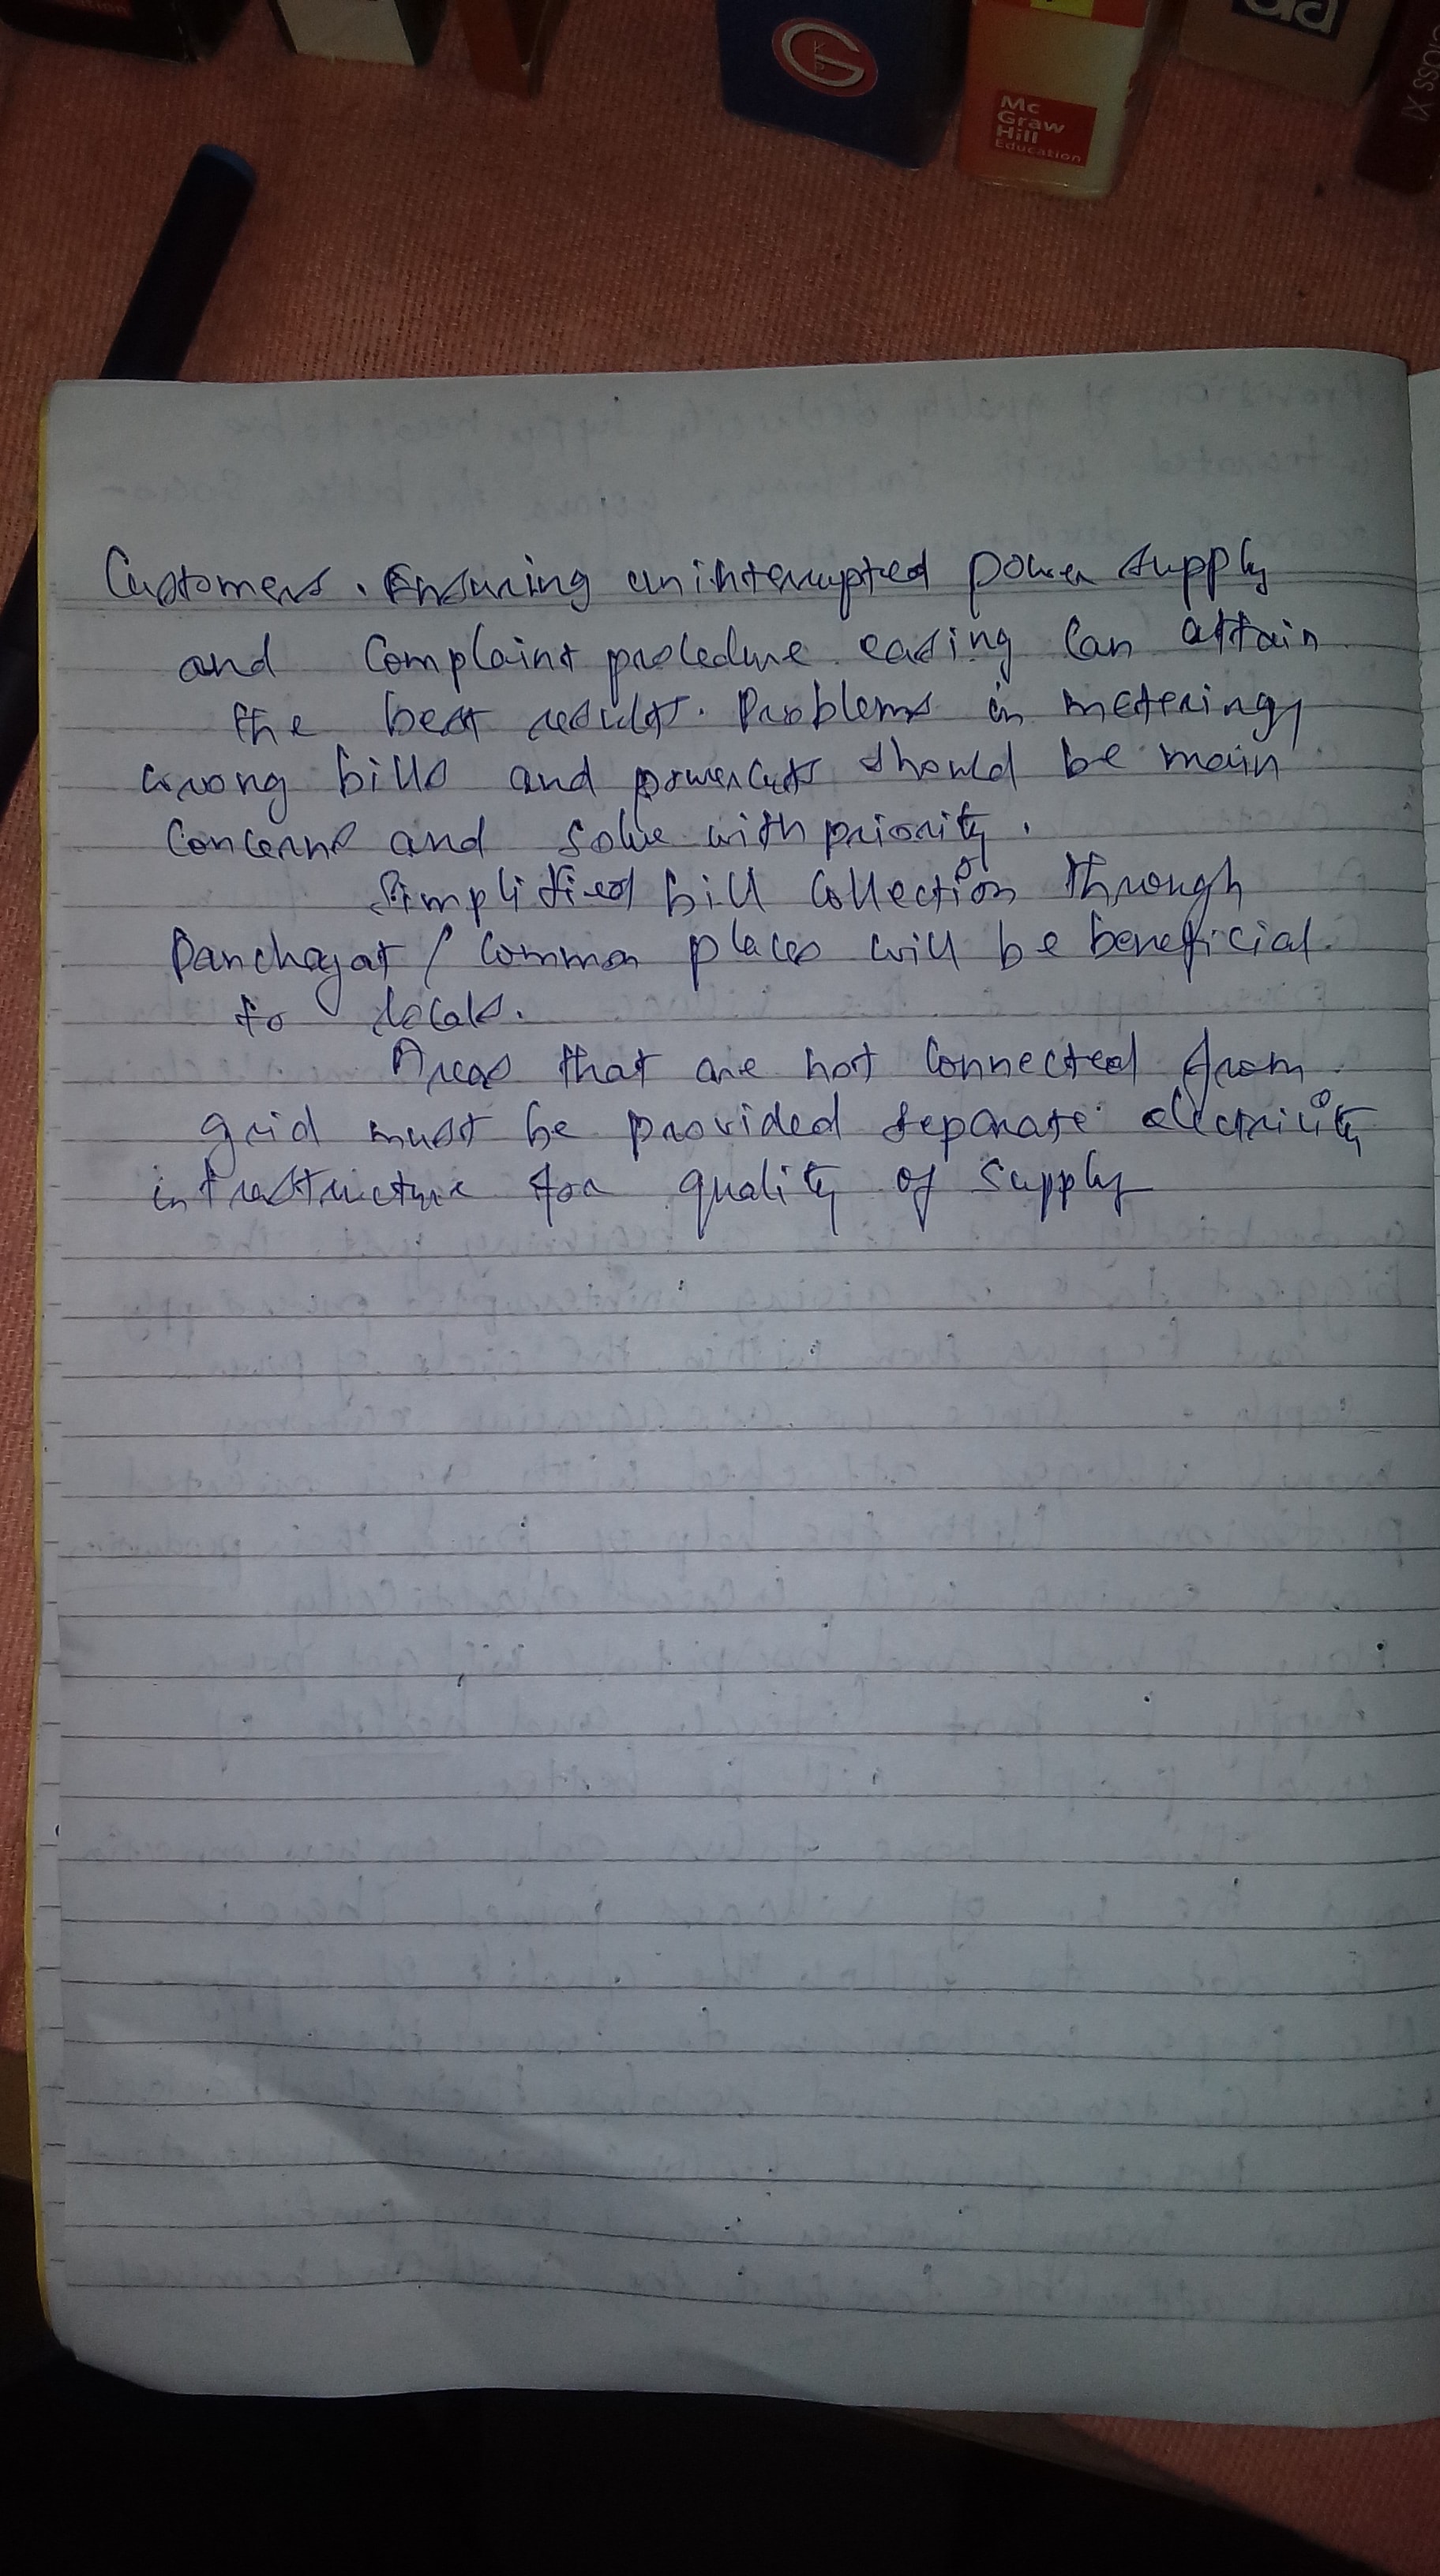 KP
G
Mc
Graw
Hill
Education
Class XI
Customers. Ensuring uninterrupted power supply
and Complaint procedure easing can attain
the best results. Problems in metering,
wrong bills and powercuts should be main
concerns and solve with priority.
Simplified bill collection through
Panchayat / common places will be beneficial
to locals.
Areas that are not connected from
grid must be provided separate electricity
infrastructure for quality of supply